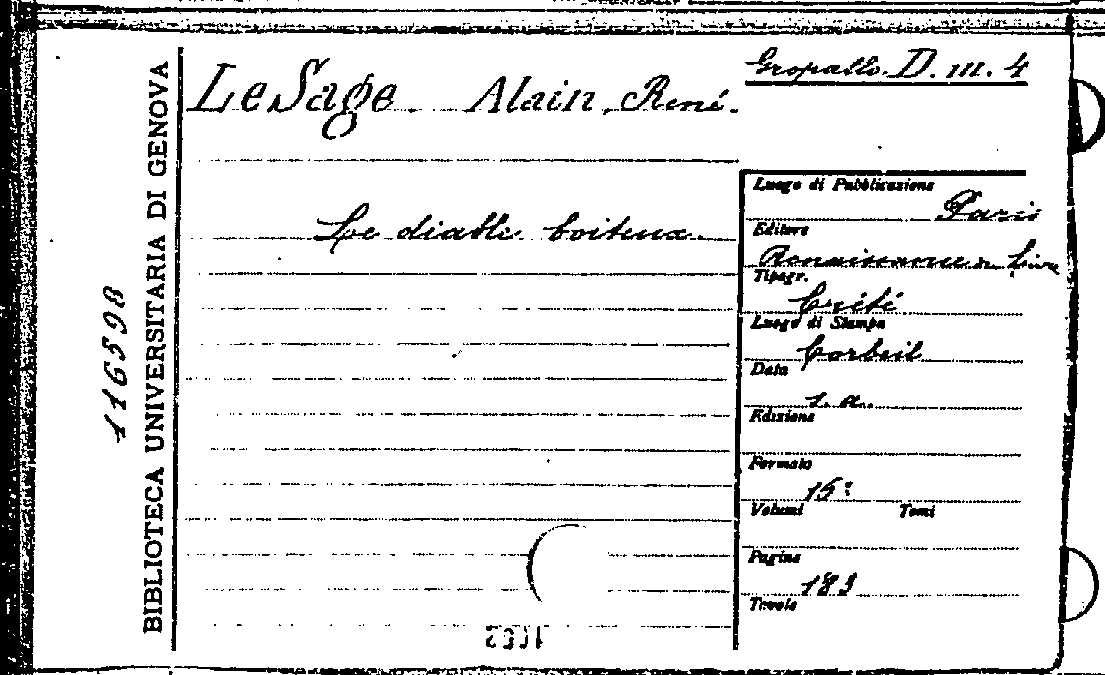 Gropallo. D. III. 4
Le Sage Alain René.
Le diable boiteux.
Luogo di Pubblicazione
Paris
Editore
Renaissance du Livre
Tipogr.
Crété
Luogo di Stampa
Corbeil
Data
s. a.
Edizione
Formato
15º
Volumi Tomi
Pagine
183
Tavole
BIBLIOTECA UNIVERSITARIA DI GENOVA
116598